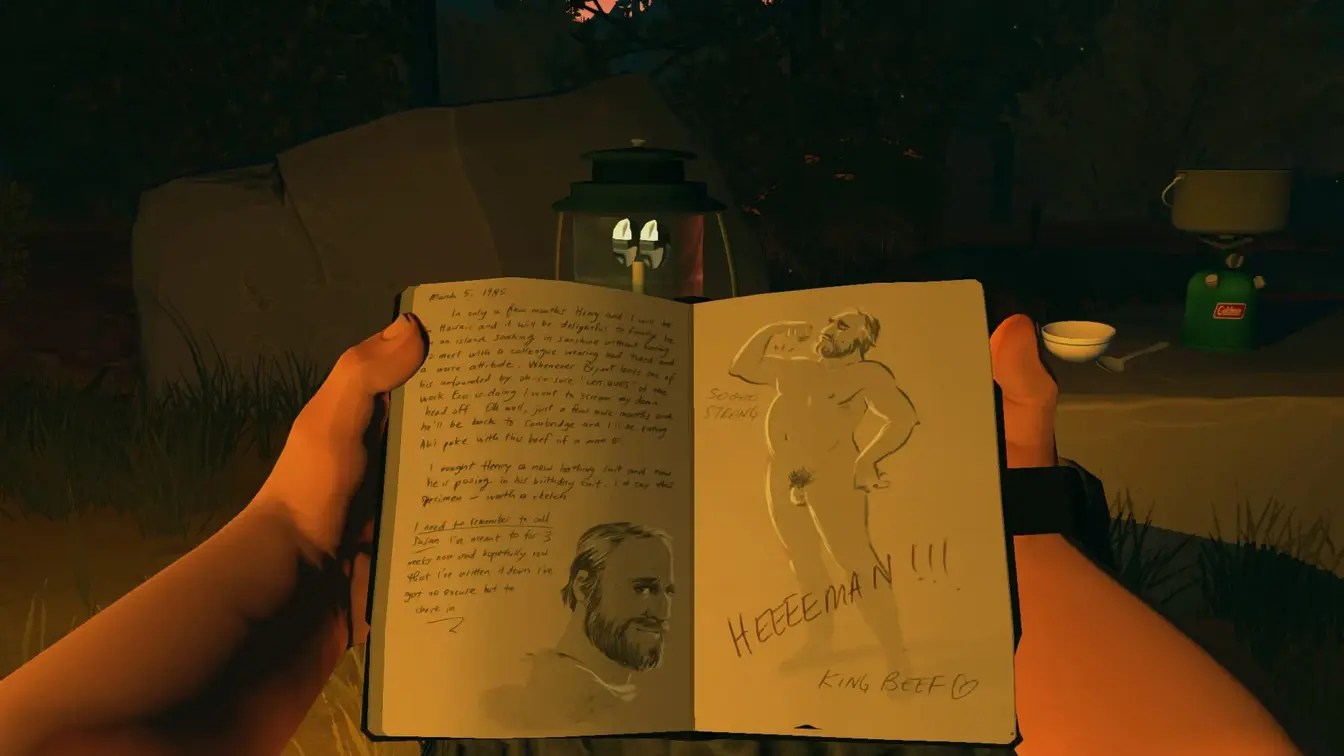 March 5, 1985
In only a few months Henry and I will be
Hawaii and it will be delightful to finally be
on island soaking in sunshine without having
meet with a colleague wearing bad tweed and
a more attitude. Whenever Bryant lobs one of
his unfounded by oh-so sure "concerns" at the
work I want to scream my damn
head off. Oh well, just a few more months and
he'll be back to Cambridge and I'll be eating
Ahi poke with this beef of a man
I bought Henry a new bathing suit and now
he is posing in his birthday suit. I'd say this
specimen is worth a sketch
I need to remember to call
Susan I've meant to for 3
weeks now and hopefully now
that I've written it down I've
got no excuse but to
check in
SOOOO
STRONG
HEEEEMAN!!!
KING BEEF
Coleman